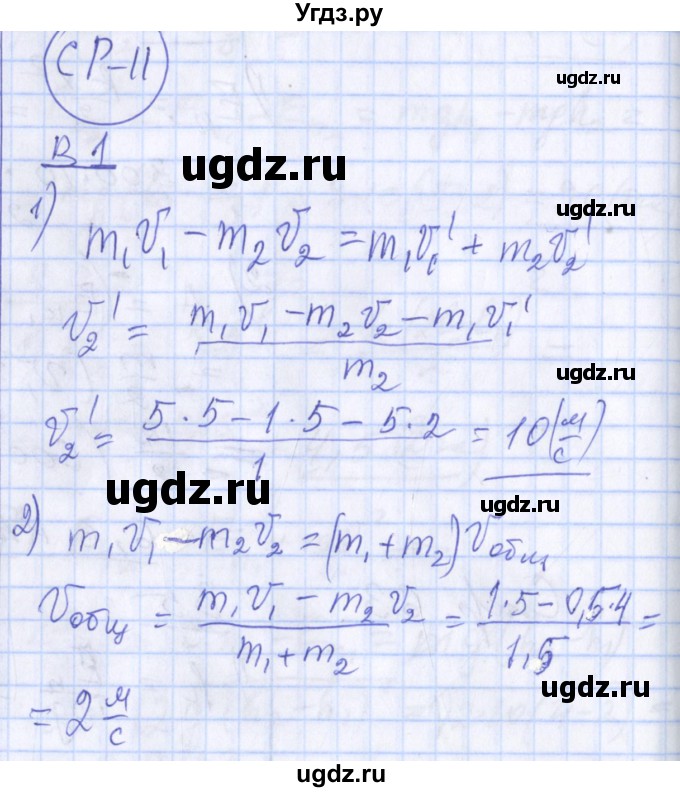 Угдз.ру
СР-11
ugdz.ru
В 1
ugdz.ru
ugdz.ru
1) m₁v₁ - m₂v₂ = m₁v₁' + m₂v₂'
v₂' = (m₁v₁ - m₂v₂ - m₁v₁') / m₂
v₂' = (5·5 - 1·5 - 5·2) / 1 = 10 (м/с)
ugdz.ru
ugdz.ru
2) m₁v₁ - m₂v₂ = (m₁ + m₂) v общ
v общ = (m₁v₁ - m₂v₂) / (m₁ + m₂) = (1·5 - 0,5·4) / 1,5 =
ugdz.ru
= 2 м/с
ugdz.ru
ugdz.ru